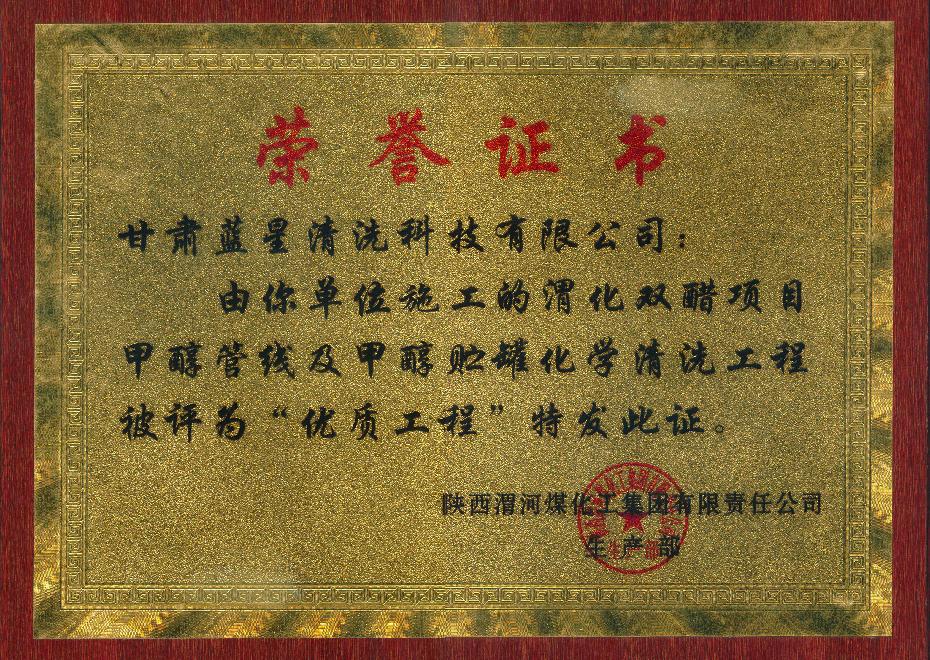 荣誉证书
甘肃蓝星清洗科技有限公司：
由你单位施工的渭化双醋项目
甲醇管线及甲醇贮罐化学清洗工程
被评为“优质工程”特发此证。
陕西渭河煤化工集团有限责任公司
生产部